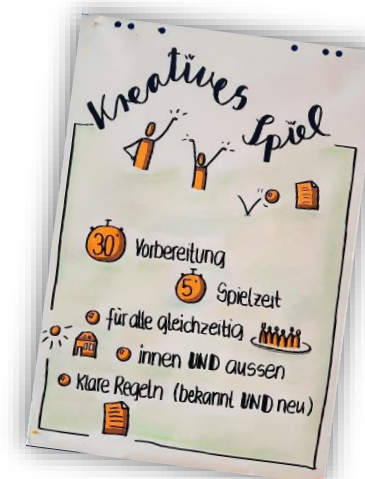 Kreatives
Spiel
30' Vorbereitung
5' Spielzeit
für alle gleichzeitig
innen UND aussen
Klare Regeln (bekannt UND neu)